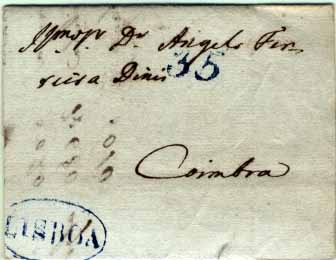 Illmo Sr. Dr. Angelo Fer
reira Diniz
35
Coimbra
LISBOA